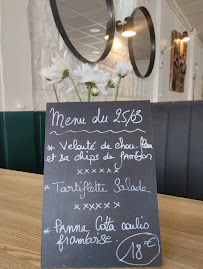 Menu du 25/03
* Velouté de chou-fleur
et sa chips de jambon
xxxxxx
* Tartiflette Salade
xxxxxx
* Panna Cotta coulis
framboise
18€